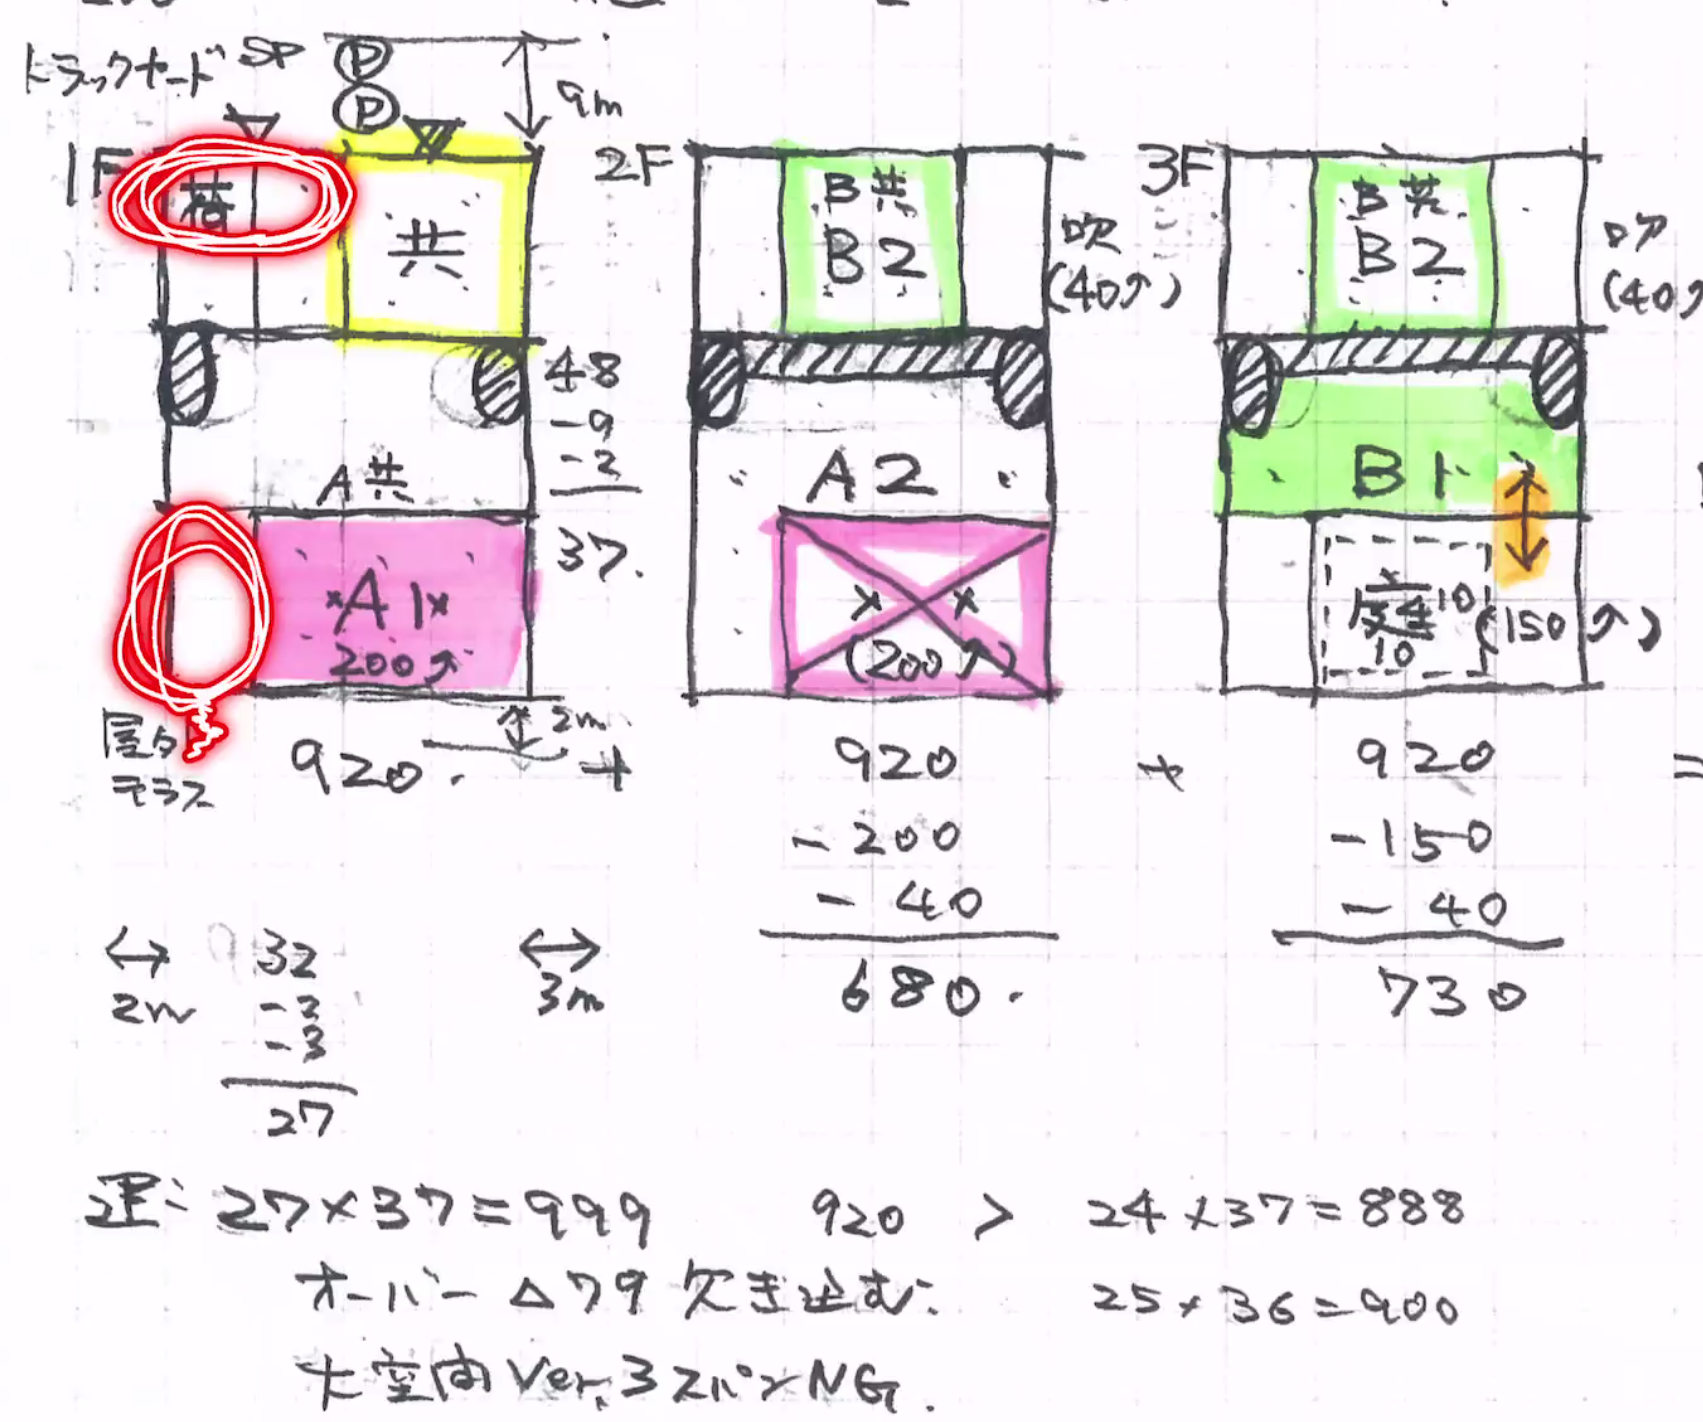 トラックヤード SP P P 9m
1F 荷 共
2F B共 B2 吹 (40↗)
3F B共 B2 吹 (40↗)
48
-9
-2
37.
A共
A1 200↗
A2 (200↗)
B1 10 10 (150↗)
屋外テラス
2m
920. + 920 + 920 =
-200
-40
680.
-150
-40
730
↔ 2m
32
-2
-3
27
↔ 3m
運: 27×37=999 920 > 24×37=888
オーバー △79 欠き込む. 25×36=900
大空間Ver. 3スパンNG.